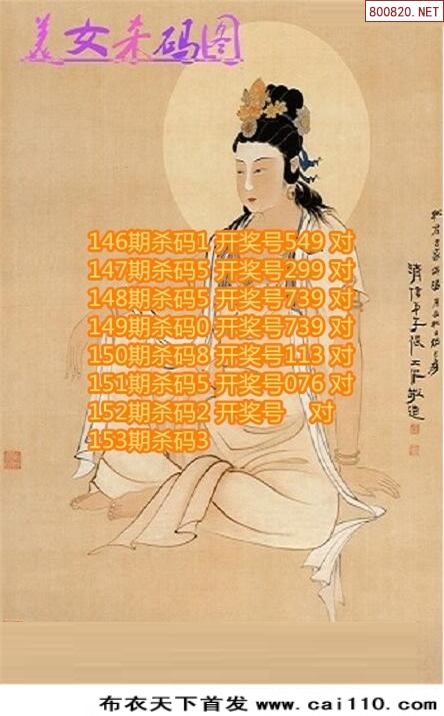 800820.NET
美女杀码图
146期杀码1 开奖号549 对
147期杀码5 开奖号299 对
148期杀码5 开奖号739 对
149期杀码0 开奖号739 对
150期杀码8 开奖号113 对
151期杀码5 开奖号076 对
152期杀码2 开奖号 对
153期杀码3
清信弟子張大千敬造
布衣天下首发 www.cai110.com